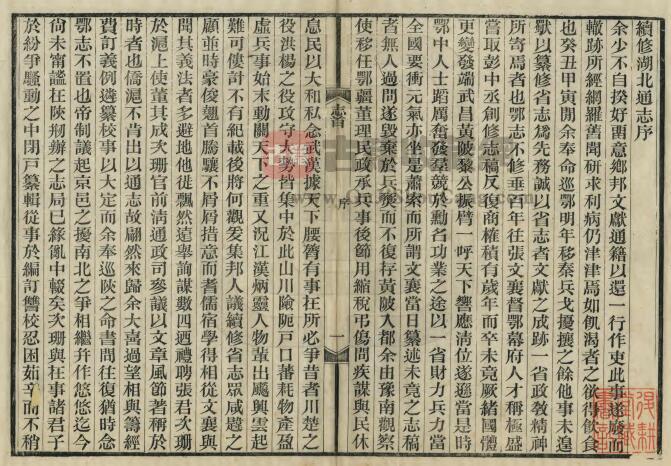 續修湖北通志序
余少不自揆好畱意鄉邦文獻通籍以還一行作吏此事遂廢而
轍跡所經網羅舊聞研求利病仍津津焉如飢渴者之欲得飲食
也癸丑甲寅閒余奉命巡鄂明年移秦兵戈擾攘之餘他事未遑
獻以纂修省志爲先務誠以省志者文獻之成跡一省政教精神
所寄焉者也鄂志不修垂百年往張文襄督鄂幕府人才稱極盛
嘗取彭中丞創修志稿反覆商榷積有歲年而卒未竟厥緒國體
更變發端武昌黃陂黎公振臂一呼天下響應淸位遂遜當是時
鄂中人士蹈厲奮發羣競於勳名功業之途以一省財力兵力當
全國要衝元氣亦坐是蕭索而所謂文襄當日纂述未竟之志稿
者無人過問遂毀棄於兵燹而不復存黃陂入都余由豫南觀察
使移任鄂疆董理民政承兵事後節用縮稅弔傷問疾謀與民休
序
一
息民以大和私念武漢據天下腰膂有事在所必爭昔者川楚之
役洪楊之役攻守大勢皆集中於此山川險阨戶口蕃耗物產盈
虛兵事始末動關天下之重又況江漢炳靈人物輩出飈興雲起
難可僂計不有紀載後將何觀爰集邦人議續修省志眾咸韙之
顧並時豪俊翹首騰驤不屑屑措意而耆儒宿學得相從文襄與
聞其義法者多避地他徙飄然遠舉詢謀數四迺禮聘張君次珊
於滬上使董其成次珊官前淸通政司參議以文章風節著稱於
時者也僑滬不肯出以通志故翩然來歸余大喜過望相與籌經
費訂義例遴纂校事以大定而余奉巡陝之命書問往復猶時念
鄂志不置也帝制議起京邑之擾南北之爭相繼幷作悠悠迄今
尙未甯謐在陝剏辦之志局已緣亂中輟矣次珊與在事諸君子
於紛爭騷動之中閉戶纂輯從事於編訂讐校忍困茹辛而不稍